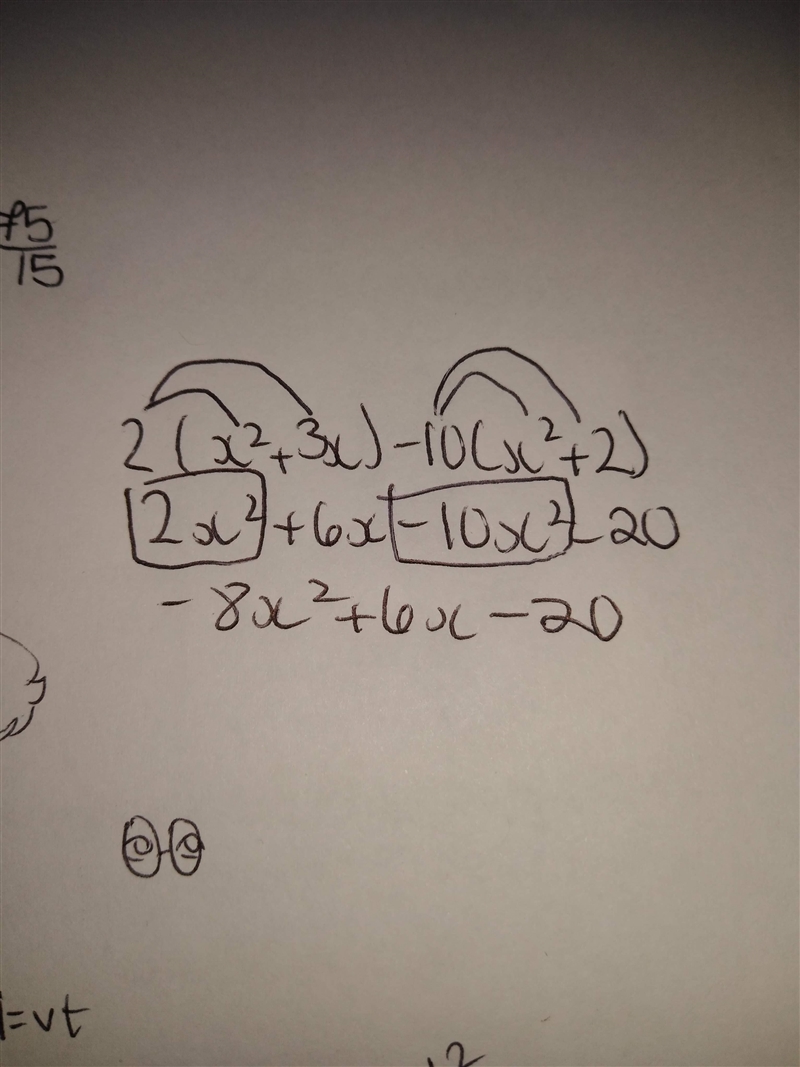 75
15
2(x²+3x)-10(x²+2)
2x²+6x-10x²-20
-8x²+6x-20
=vt
2